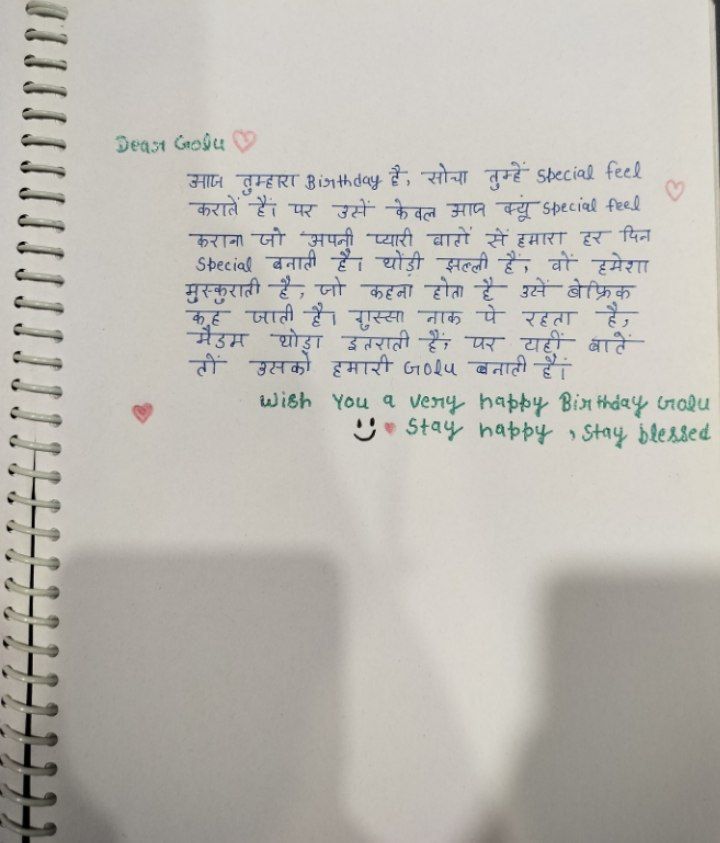 Dear Golu
आज तुम्हारा Birthday है, सोचा तुम्हें special feel
करातें हैं। पर उसें केवल आज क्यूं special feel
कराना जो अपनी प्यारी बातों सें हमारा हर दिन
special बनाती है। थोंड़ी झल्ली हैं, वों हमेशा
मुस्कुराती है, जो कहना होता है उसें बेफ्रिक
कह जाती है। गुस्सा नाक पे रहता है,
मैडम थोड़ा इतराती हैं, पर यहीं बातें
तों उसको हमारी Golu बनाती हैं।
Wish You a very happy Birthday Golu
Stay happy, Stay blessed